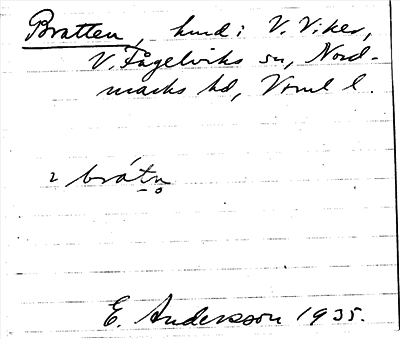 Bratten, hmd i V. Viker,
V. Fågelviks sn, Nord-
marks hd, Vrml l.
2 brátn̥
E. Andersson 1935.